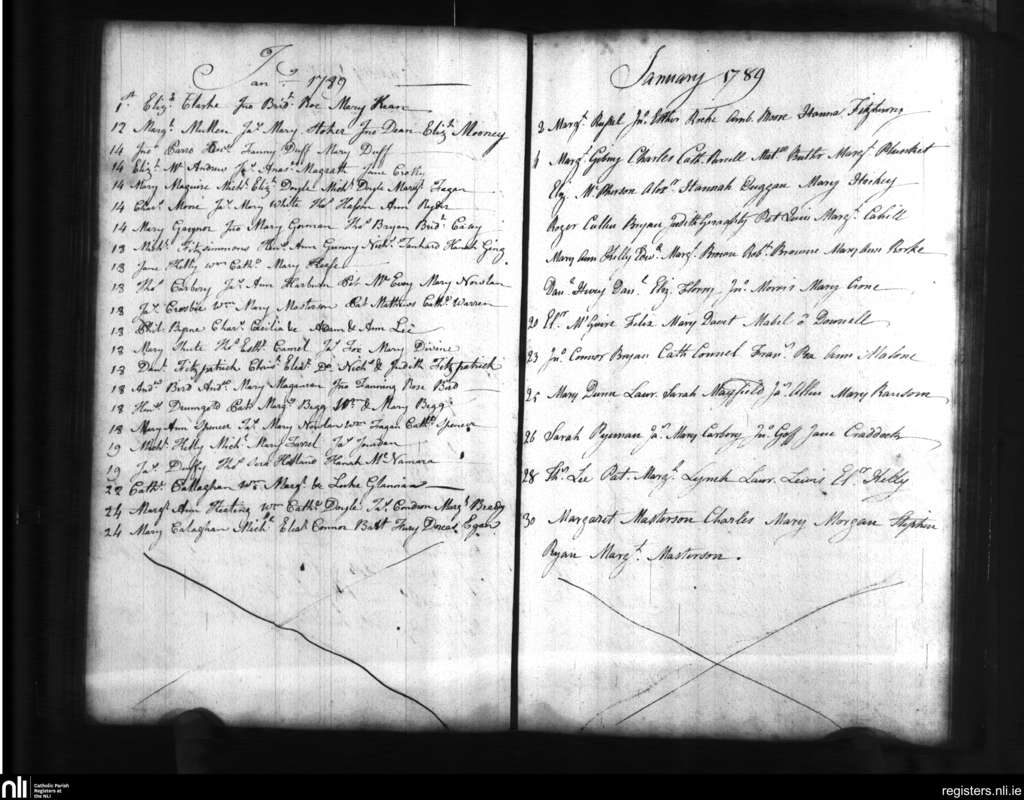 Jan.y 1789
1st Eliz.h Clarke Jno Brid.t Roe Mary Keane
12 Marg.t Mullen Ja.s Mary Stoker Jno Dean Eliz.h Mooney
14 Jno Fanny Duff Mary Duff
14 Eliz.h Mc Andrew Ja.s Anas.a Magrath Jane Crosby
14 Mary Maguire Mich.l Eliz.h Doyle Mich.l Doyle Marg.t Fagan
14 Char.s Moore Ja.s Mary White Tho.s Ann Ryder
14 Mary Gaynor Jno Mary Gorman Tho.s Bryan Brid.t Casay
18 Mich.l Fitzsimmons Hen.y Ann Nich.s Hanah
18 Jane Kelly Wm Cath.e Mary Keefe
18 Tho.s Corbery Ja.s Ann Harbun Pat Mc Evoy Mary Nowlan
18 Ja.s Crosbie Wm Mary Masterson Pat Matthews Cath.e Warren
18 Phil. Byrne Char.s Cecilia & Adam & Ann Lee
18 Mary Tho.s Esth.r Ja.s Fox Mary Divine
18 Dan.l Fitzpatrick Chris.r Eliz.h Do Nich.s & Judith Fitzpatrick
18 And.w Bird And.w Mary Maganan Jno Fanning Rose Bird
18 Hen.y Drumgold Pat Marg.t Begg Wm & Mary Begg
18 Mary Ann Spencer Ja.s Mary Nowlan Wm Fagan Cath.e Spencer
19 Mich.l Kelly Mich.l Mary Farrel Ja.s
19 Ja.s Duffy Tho.s Holland Hanah Mc Namara
22 Cath.e Callaghan Wm Marg.t & Luke
24 Marg.t Ann Keating Wm Cath.e Doyle Ja.s Condron Marg.t Brady
24 Mary Calaghan Mich.l Eliz.h Connor Bart Dorcas Egan
January 1789
2 Marg.t Russel Jno Esther Rorke Amb. Moore Hanna Fitzhenry
4 Marg.t Charles Cath. Farrell Mat.w Butler Marg.t Plunket
Eliz. Mc Pherson Alex.r Hannah Duggan Mary Hickey
Roger Cullen Bryan Judith Geraghty Pat Marg.t Cahill
Mary Ann Kelly Edw.d Marg.t Brown Rob.t Browne Mary Ann Rorke
Dan.l Dan.l Eliz. Jno Morris Mary Crone
20 El.r Mc Guire Felix Mary Davet Mabel o Donnell
23 Jno Connor Bryan Cath Connel Fran.s Rea Ann Malone
25 Mary Dunn Laur. Sarah Mayfield Ja.s Allen Mary Ransom
26 Sarah Ryeman Ja.s Mary Carbery Jno Goff Jane Craddock
28 Th.s Lee Pat. Marg.t Lynch Laur. Lewis El.r Kelly
30 Margaret Masterson Charles Mary Morgan Stephen
Ryan Marg.t Masterson.
nli
Catholic Parish
Registers at
the NLI
registers.nli.ie